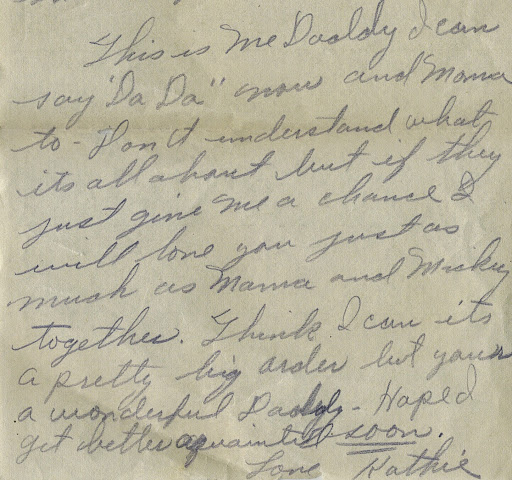 This is Me Daddy I can
say "Da Da" now and Mama
to - Don't understand what
its all about but if they
just give me a chance I
will love you just as
much as Mama and Mickey
together. Think I can its
a pretty big order but your
a wonderful Daddy - Hope
get better aquainted soon.
Love Kathie